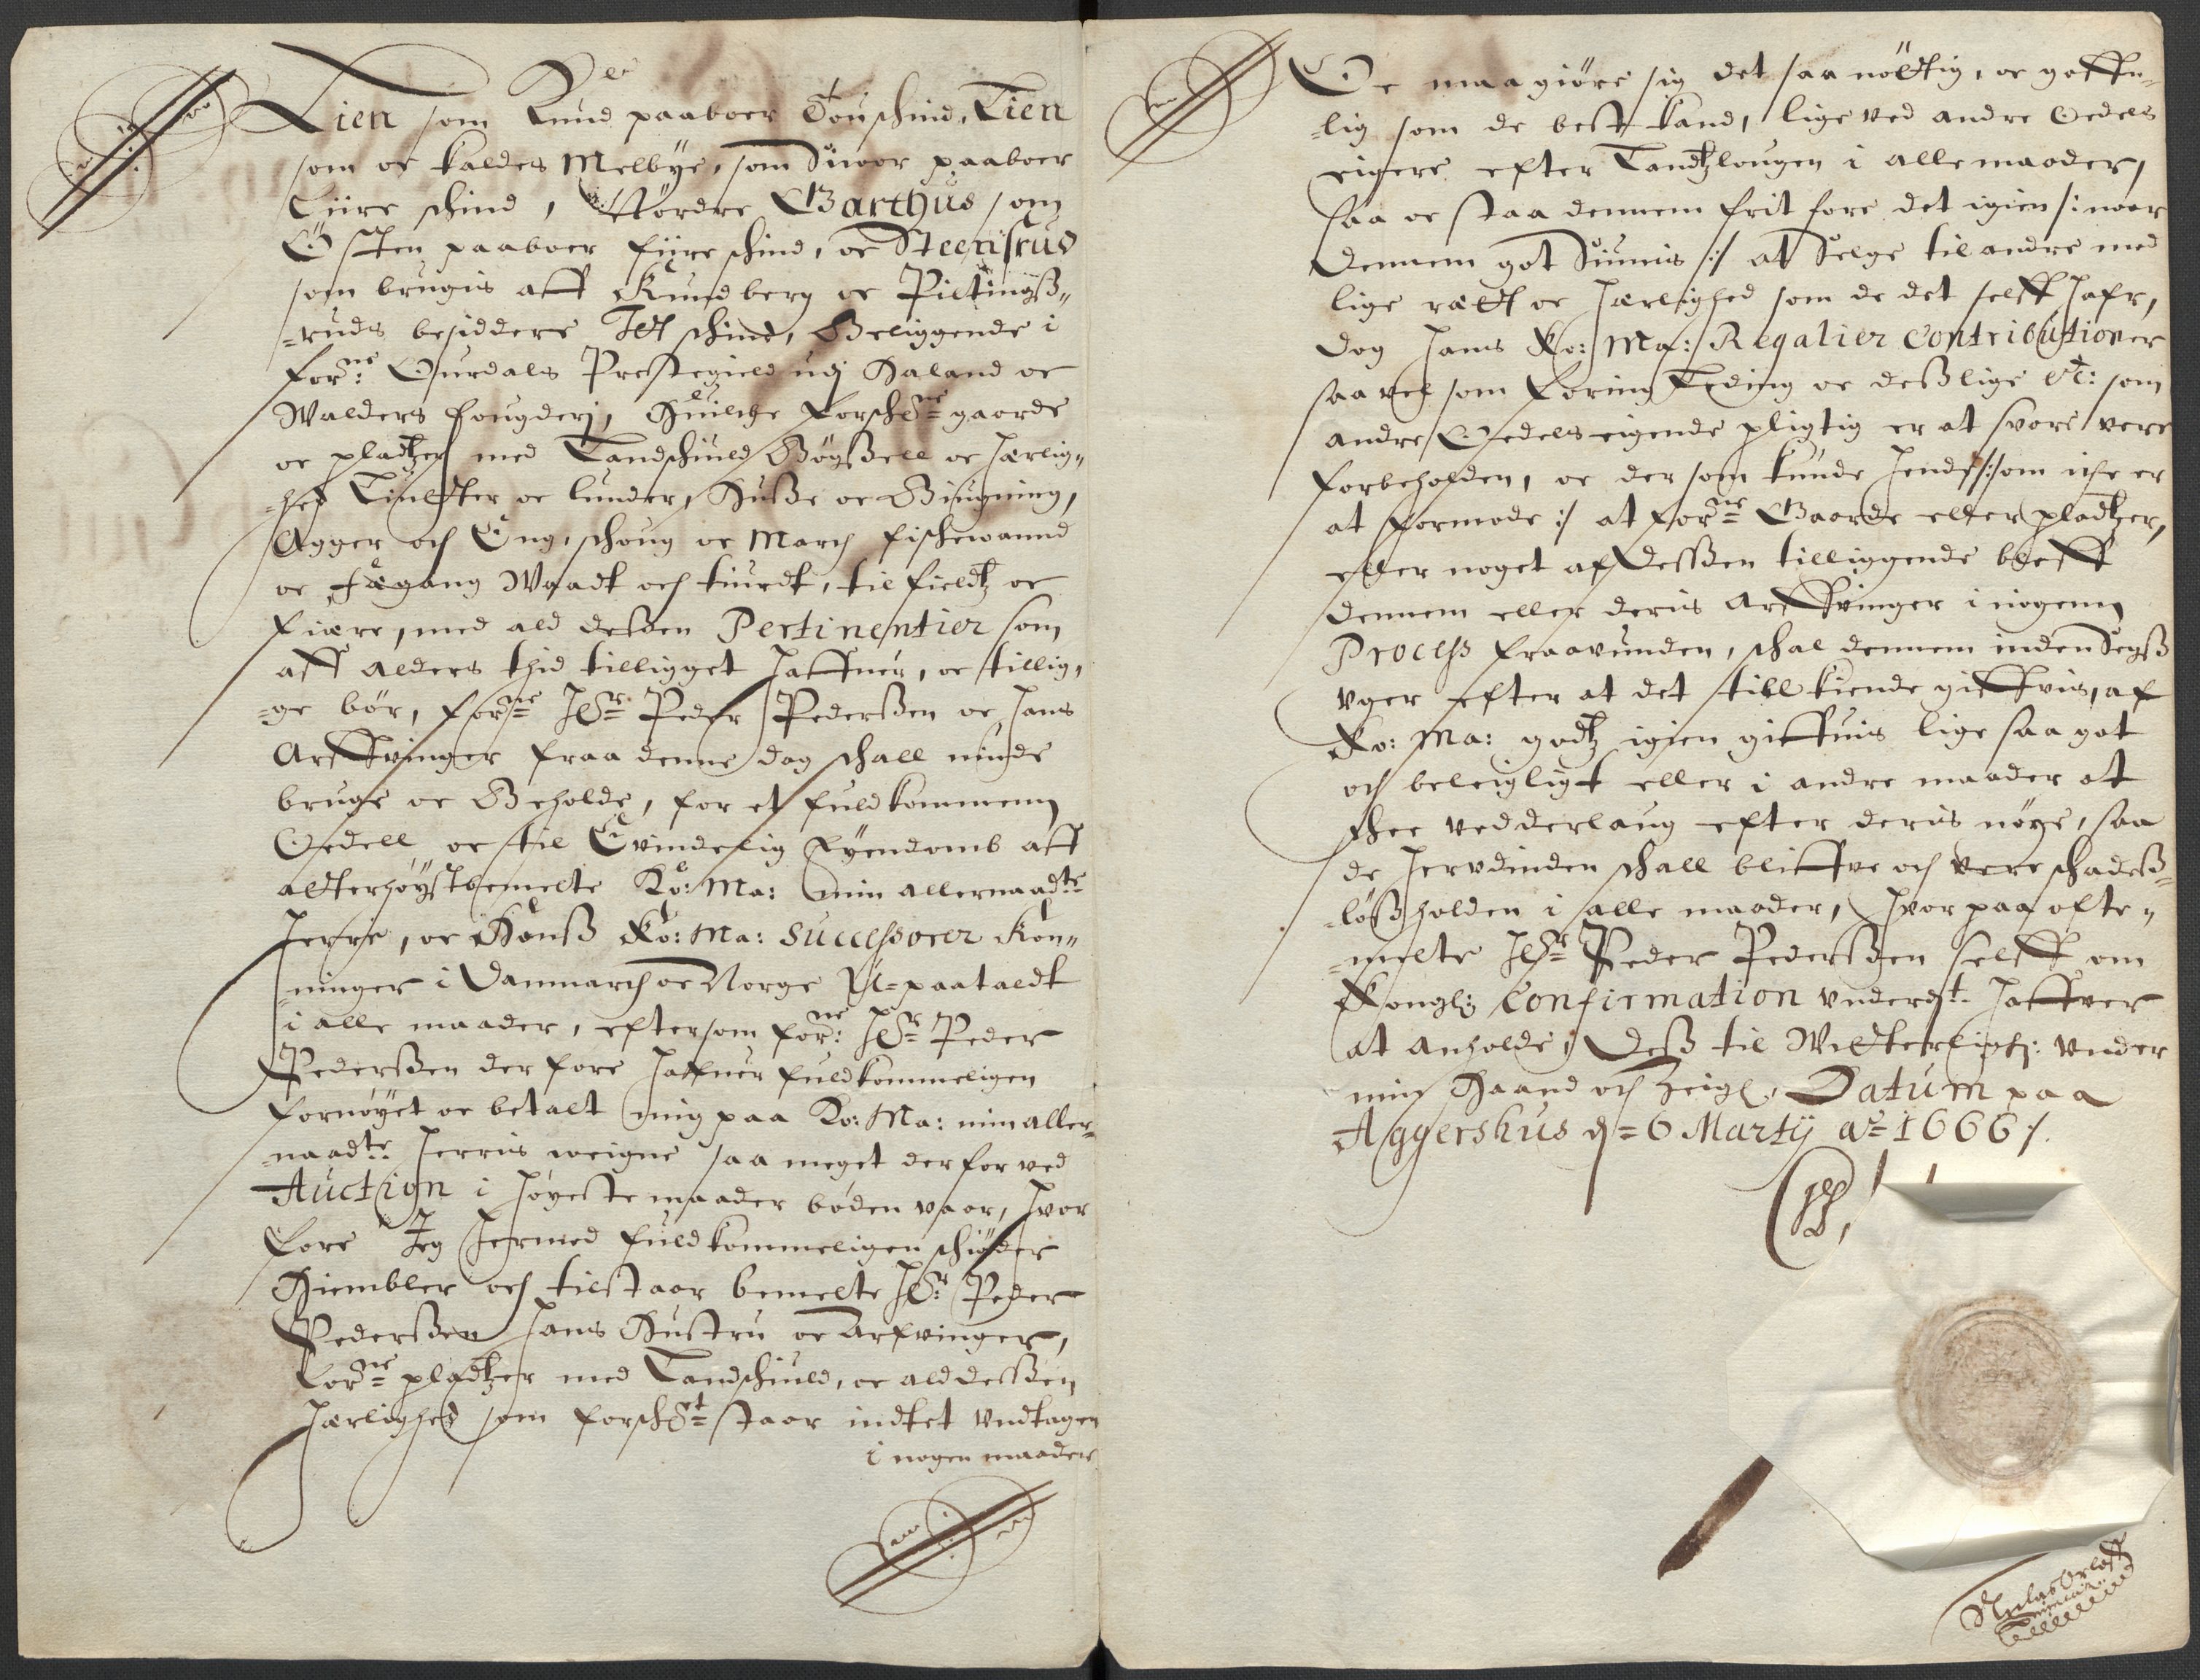 Lien som Knud paaboer Tou schind, Lien
som oc kaldes Melbye, som Siuor paaboer
Fiire schind, Nördre Garthus som
Östen paaboer fiire schind, oc Steensrud
som brugis aff Rundberg oc Piltingß„
=ruds besiddere Itt schind, Beliggende i
forne: Ourdals Prestegield udj Haland oc
Walders fougderj, Huilche forschne gaarde
oc pladtzer med Landschuld Bögßell oc herlig„
=hed Lutter oc lunder, Huße oc Biugning,
Agger och Eng, schoug oc March fischevannd
oc fægang Waadt och tiurdt, til fieldtz oc
fiære, med ald deßen Pertinentier som
aff alders thid tilligget haffuer, oc tillig„
=ge bör, forne Hr Peder Pederßen oc hans
Arffvinger fraa denne dag schall niude
bruge oc Beholde, for et fuldkommenn
Oedell oc til Evindelig Eyendomb aff
alderhöystbemelte Ko: Ma: min allernaadte
Herre, oc Hanß Ko: Ma: Successorer Kon„
=ninger i Danmarch oc Norge U=paataldt
i alle maader, eftersom forne: Hr Peder
Pederßen der fore haffuer fuldkommeligen
fornöyet oc betalt mig paa Ko: Ma: min aller„
=naadte Herris veigne saa meget der for ved
Auction i höyeste maader böden vaar, hvor
fore Jeg hermed fuldkommeligen schiöder
Hiembler och tilstaar bemelte Hr: Peder
Pederßen hans Hustru oc Arfvinger,
forne pladtzer med Landschuld, oc ald deßen
herlighed som forscht staar indtet undtagen
i nogen maader
Oc maa giöre sig det saa nöttig, oc gaffn„
=lig som de best kand, lige ved andre Oedels
eigere efter Landtzlougen i alle maader,
saa oc staa dennem frit fore det igien /: naar
Dennem got siunis :/ at Selge til andre med
lige rætt oc herlighed som de det selff hafr,
dog hans Ko: Ma: Regalier Contributioner
saa vel som foring Leding oc deßlige etc: som
andre Oedels eigende pligtig er at svare vere
forbeholden, oc der som kunde hende /: som iche er
at formode :/ at forne Gaarde eller pladtzer,
eller noget af deßen tilliggende bleff
dennem eller deris Arffvinger i nogenn
Process fraavunden, schal dennem inden Segß
uger efter at det tilkiende giffvis, af
Ko: Ma: godtz igien giffuis lige saa got
och beleigligt eller i andre maader at
schee vedderlaug efter deris nöye, saa
de herudinden schall bliffve och vere schadeß„
=löß holden i alle maader, hvor paa ofte„
=melte Hr Peder Pederßen selff om
Kongl: Confirmation underdt haffver
at anholde, Deß til Witterligh: under
min Haand och Zeigl. Datum paa
Aggershus d= 6 Martij Ao= 1666 /.